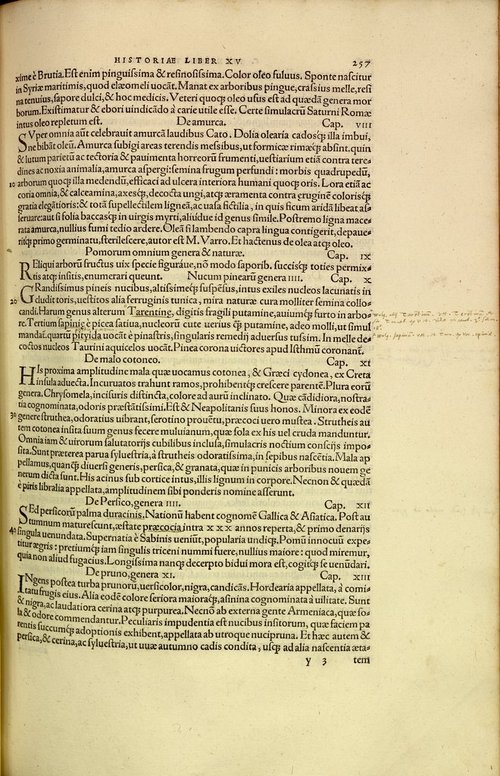 HISTORIAE LIBER XV 257
xime è Brutia. Est enim pinguissima & resinosissima. Color oleo fuluus. Sponte nascitur
in Syriæ maritimis, quod elæomeli uocāt. Manat ex arboribus pingue, crassius melle, resi
na tenuius, sapore dulci, & hoc medicis. Veteri quoq; oleo usus est ad quædā genera mor
borum. Existimatur & ebori uindicādo à carie utile esse. Certe simulacrū Saturni Romæ
intus oleo repletum est. De amurca. Cap. VIII
SVper omnia aūt celebrauit amurcā laudibus Cato. Dolia olearia cadosq; illa imbui,
ne bibāt oleū. Amurca subigi areas terendis messibus, ut formicæ rimæq; absint. quin
& lutum parietū ac tectoria & pauimenta horreorū frumenti, uestiarium etiā contra tere
dines ac noxia animalia, amurca aspergi: semina frugum perfundi: morbis quadrupedū,
10 arborum quoq; illa medendū, efficaci ad ulcera interiora humani quoq; oris. Lora etiā ac
coria omnia, & calceamina, axesq;, decocta ungi, atq; æramenta contra æruginē colorisq;
gratia elegātioris: & totā supellectilem ligneā, ac uasa fictilia, in quis ficum aridā libeat as/
seruare: aut si folia baccasq; in uirgis myrti, aliudue id genus simile. Postremo ligna mace
rata amurca, nullius fumi tedio ardere. Oleā si lambendo capra lingua contigerit, depaue/
ritq; primo germinatu, sterilescere, autor est M. Varro. Et hactenus de olea atq; oleo.
Pomorum omnium genera & naturæ. Cap. IX
REliqui arborū fructus uix specie figuráue, nō modo saporib. succisq; toties permix/
tis atq; insitis, enumerari queunt. Nucum pinearū genera IIII. Cap. X
GRandissimus pineis nucibus, altissimeq; suspēsus, intus exiles nucleos lacunatis in
20 cludit toris, uestitos alia ferruginis tunica, mira naturæ cura molliter semina collo/
candi. Harum genus alterum Tarenting, digitis fragili putamine, auiumq; furto in arbo/
re. Tertium sapinię è picea satiua, nucleorū cute uerius q̃ putamine, adeo molli, ut simul
mandat. quartū pityida uocāt è pinastris, singularis remedij aduersus tussim. In melle de/
coctos nucleos Taurini aquicelos uocāt. Pinea corona uictores apud Isthmū coronant.
De malo cotoneo. Cap. XI
HIs proxima amplitudine mala quæ uocamus cotonea, & Græci cydonea, ex Creta
insula aduecta. Incuruatos trahunt ramos, prohibentq; crescere parentē. Plura eorū
genera. Chrysomela, incisuris distincta, colore ad aurū inclinato. Quæ cādidiora, nostra/
tia cognominata, odoris præstātissimi. Est & Neapolitanis suus honos. Minora ex eodē
30 genere struthea, odoratius uibrant, serotino prouētu, præcoci uero mustea. Strutheis au
tem cotonea insita suum genus fecere muluianum, quæ sola ex his uel cruda manduntur.
Omnia iam & uirorum salutatorijs cubilibus inclusa, simulacris noctium conscijs impo/
sita. Sunt præterea parua syluestria, à strutheis odoratissima, in sepibus nascētia. Mala ap
pellamus, quanq̃ diuersi generis, persica, & granata, quæ in punicis arboribus nouem ge
nerum dicta sunt. His acinus sub cortice intus, illis lignum in corpore. Necnon & quædā
è piris libralia appellata, amplitudinem sibi ponderis nomine asserunt.
De Persico, genera IIII. Cap. XII
SEd persicorū palma duracinis. Nationū habent cognomen Gallica & Asiatica. Post au
tumnum maturescunt, æstate præcocia intra XXX annos reperta, & primo denarijs
40 singula uenundata. Supernatia è Sabinis ueniūt, popularia undiq;. Pomū innocuū expe/
titur ægris: pretiumq; iam singulis triceni nummi fuere, nullius maiore: quod miremur,
quia non aliud fugacius. Longissima nanq; decerpto bidui mora est, cogitq; se uenūdari.
De pruno, genera XI. Cap. XIII
INgens postea turba prunorū, uersicolor, nigra, candicās. Hordearia appellata, à comi/
tatu frugis eius. Alia eodē colore seriora maioraq;, asinina cognominata à uilitate. Sunt
& nigra, ac laudatiora cerina atq; purpurea. Necnō ab externa gente Armeniaca, quæ so/
la & odore commendantur. Peculiaris impudentia est nucibus insitorum, quæ faciem pa
rentis succumq; adoptionis exhibent, appellata ab utroque nucipruna. Et hæc autem &
persica, & cerina, ac syluestria, ut uuæ autumno cadis condita, usq; ad alia nascentia æta-
y 3 tem